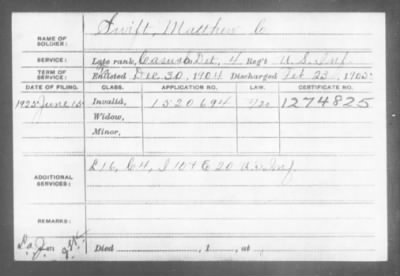 NAME OF SOLDIER: Swift, Matthew C
SERVICE: Late rank, Casual Det, 4 Reg't U.S. Inf.
TERM OF SERVICE: Enlisted Dec. 30, 1904 Discharged Feb 23, 1905
DATE OF FILING. CLASS. APPLICATION NO. LAW. CERTIFICATE NO.
1925 June 15 Invalid, 1520694 1274825
Widow,
Minor,
ADDITIONAL SERVICES: E 16, C 4, I 10 & E 20 U.S. Inf.
REMARKS:
Died , 1 , at